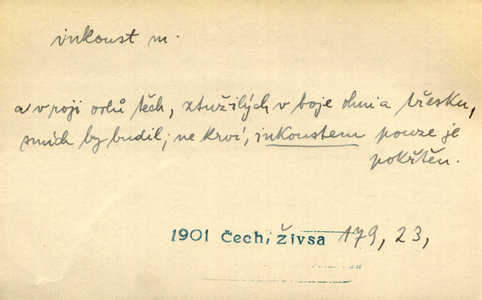 inkoust m.
a v roji orlů těch, ztužilých v boje ohni a třesku,
smích by budil; ne krví, inkoustem pouze je
pokřtěn.
1901 Čech, Živsa 179, 23,